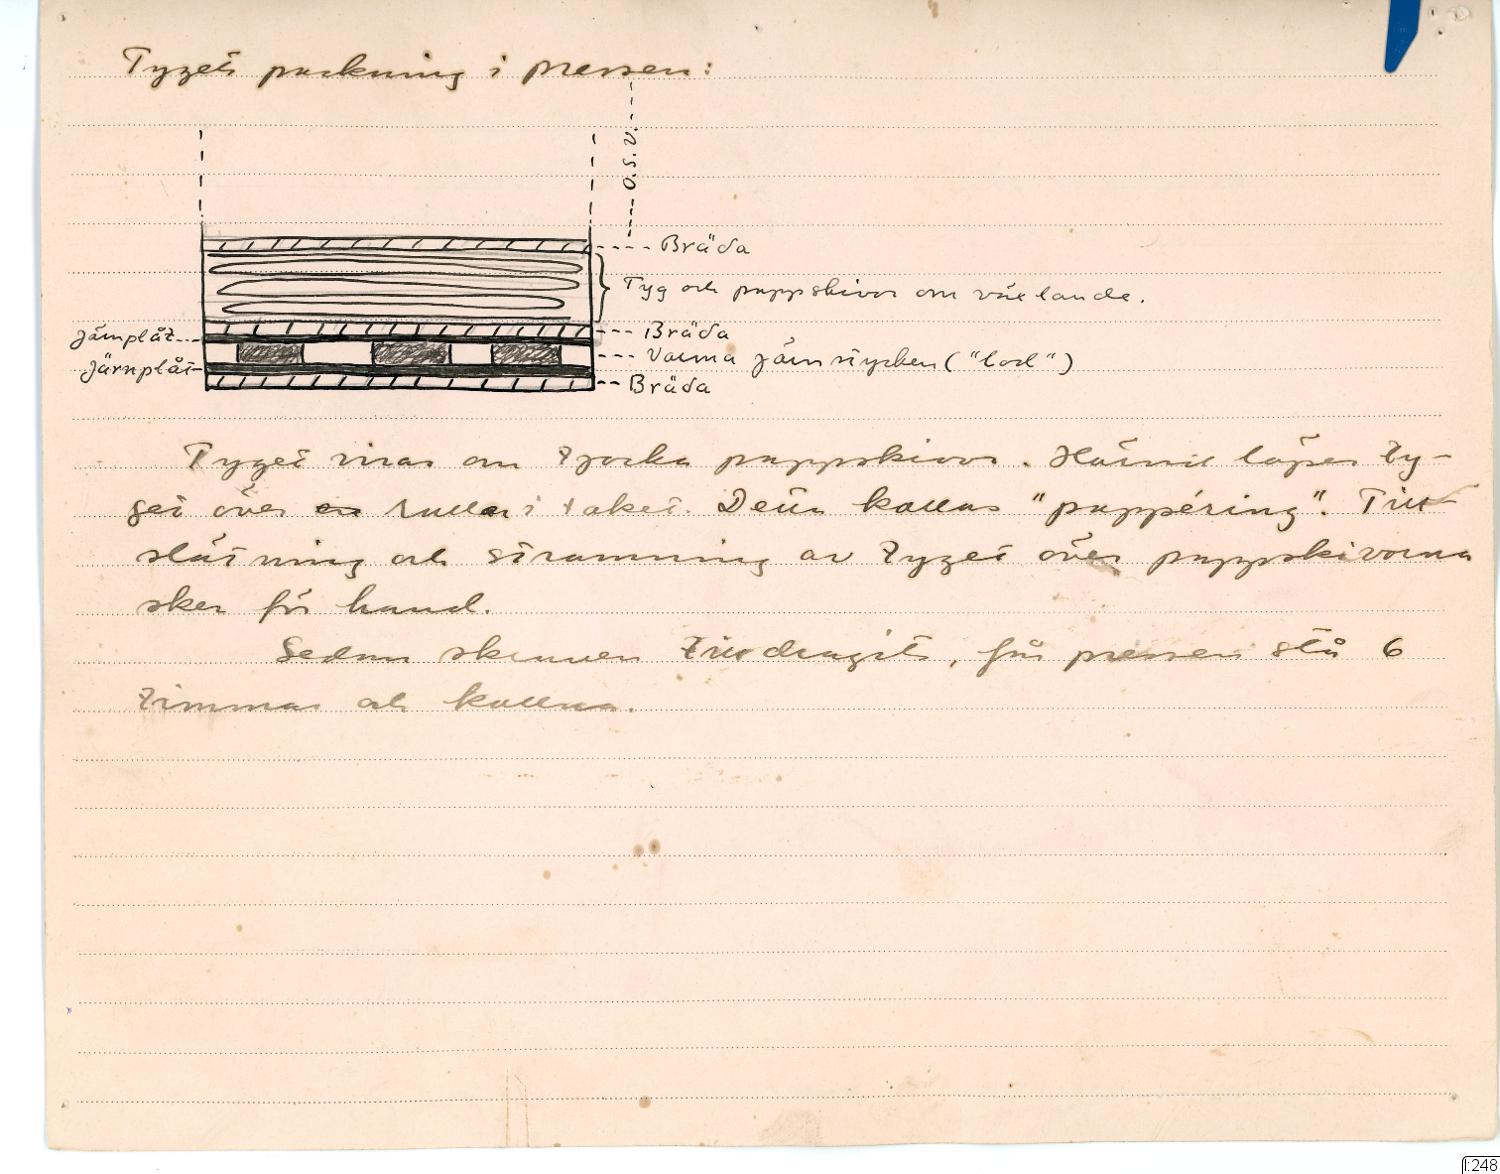 Tygets packning i pressen:
O.S.V.
Bräda
Tyg och pappskivor om växlande.
Järnplåt
Bräda
Varma järnstycken ("lod")
Järnplåt
Bräda
Tyget viras om tjocka pappskivor. Härvid löper ty-
get över en rulle i taket. Detta kallas "pappéring". Till
slätning och stramning av tyget över pappskivorna
sker för hand.
Sedan skruven tilldragits, får pressen stå 6
timmar och kallna.
I:248